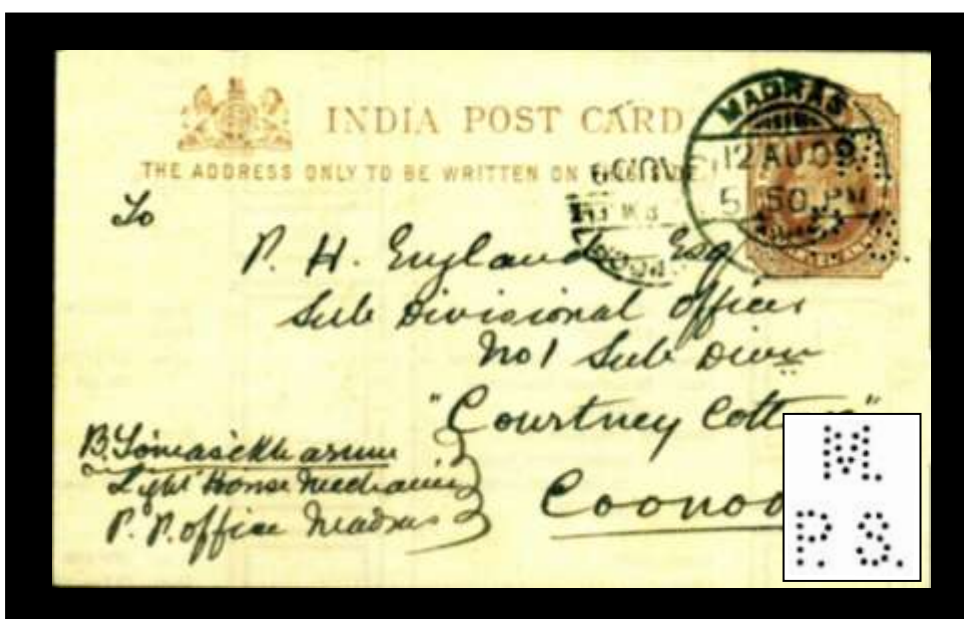 INDIA POST CARD
THE ADDRESS ONLY TO BE WRITTEN ON
MADRAS
12 AU 09
5 50 PM
To
P. H. England Esq
Sub Divisional Officer
No 1 Sub Divn
"Courtney
Coonoo
Light House Mechanic
P. P. office Madras
M.
P. S.